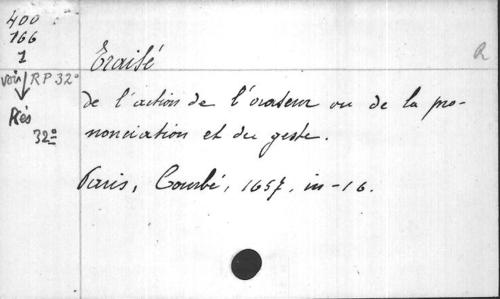 400
166
1
voir RP 32°
Rés
32°
Traité
de l'action de l'orateur ou de la pro-
nonciation et du geste.
Paris, Courbé, 1657, in-16.
R